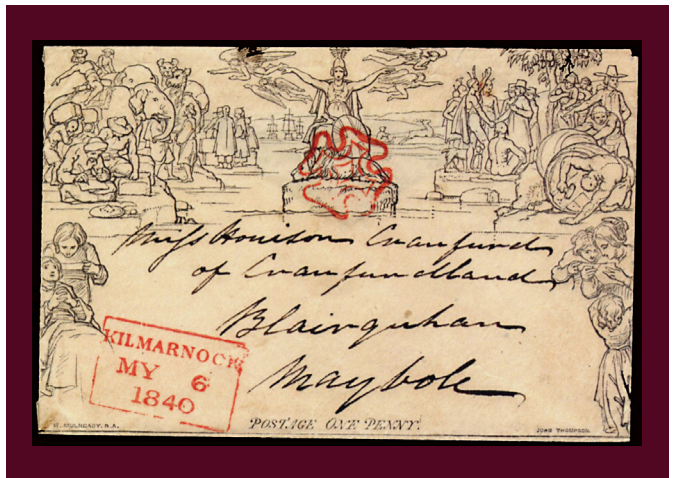 Miss Houison Craufurd
of Craufurdland
Blairquhan
Maybole
KILMARNOCK
MY 6
1840
W. MULREADY. R.A.
POSTAGE ONE PENNY.
JOHN THOMPSON